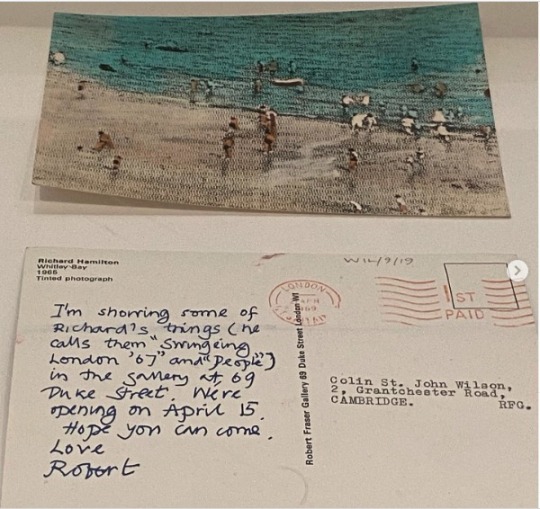 Richard Hamilton
Whitley Bay
1965
Tinted photograph
W14/9/19
LONDON
1ST
PAID
I'm showing some of
Richard's things (he
calls them "Swingeing
London '67" and "People")
in the gallery at 69
Duke Street. We're
opening on April 15.
Hope you can come.
Love
Robert
Robert Fraser Gallery 69 Duke Street London W1
Colin St. John Wilson,
2, Grantchester Road,
CAMBRIDGE. RFG.